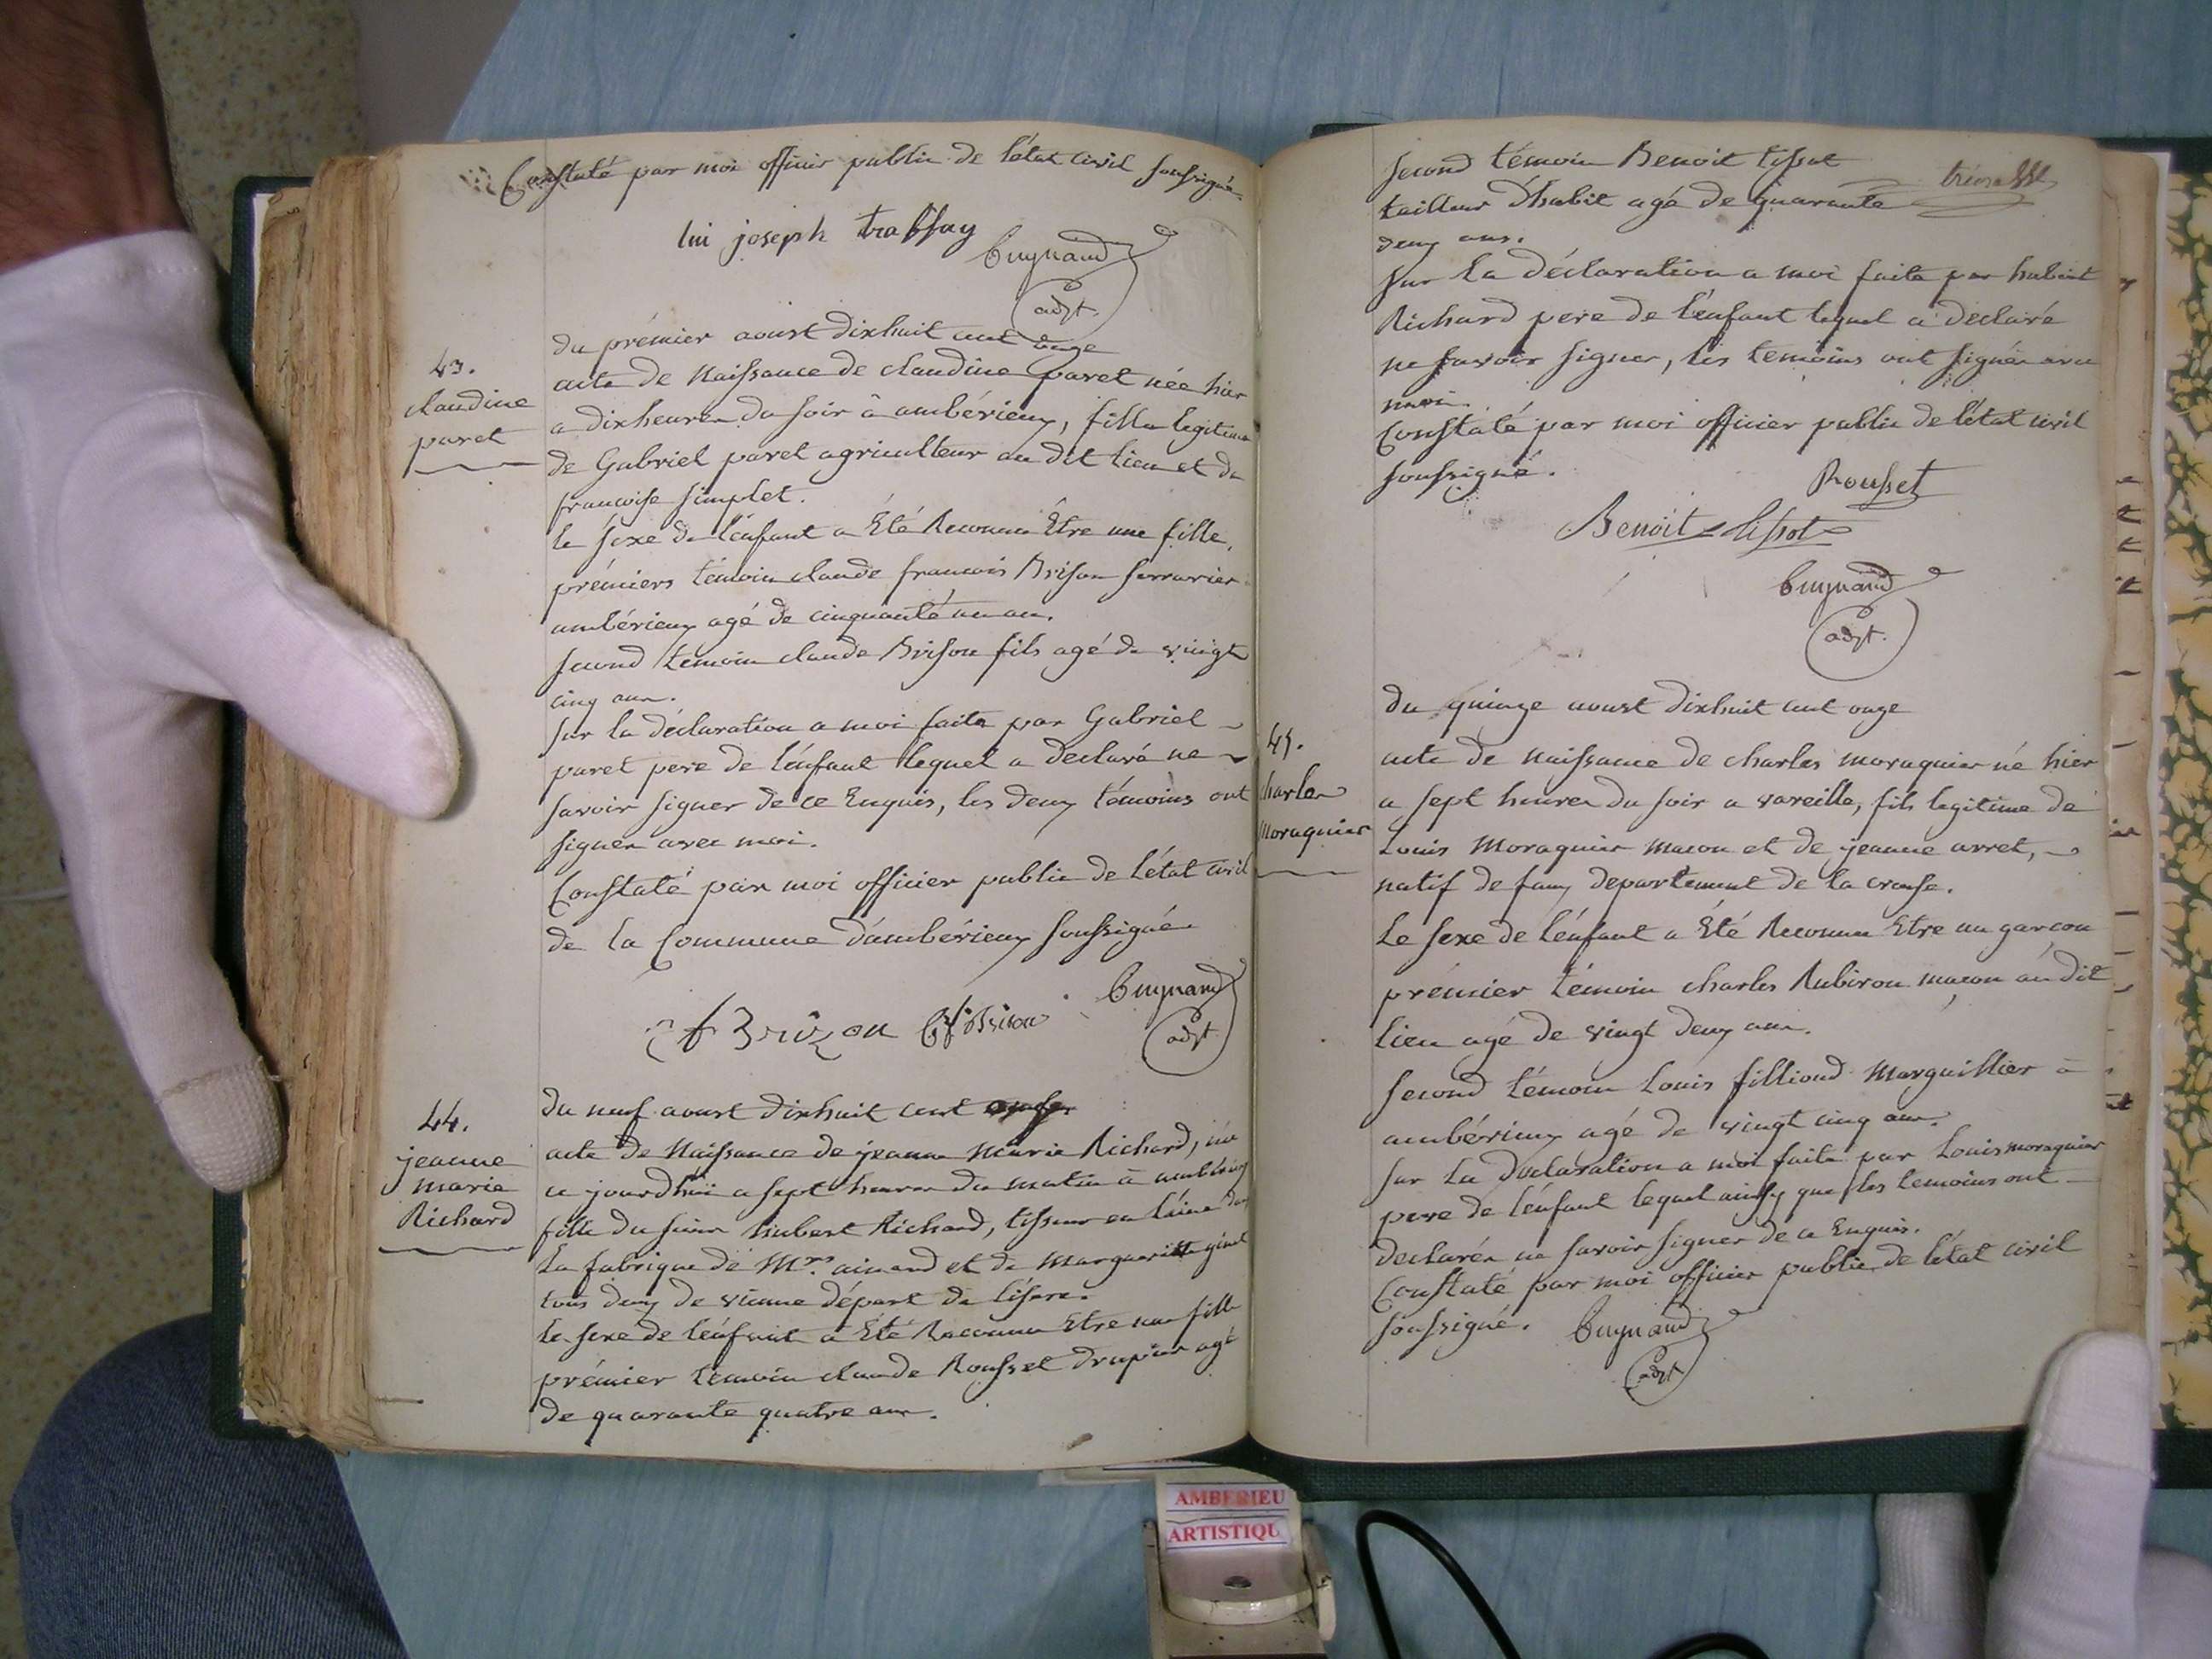 Constaté par moi officier public de l'état civil soussigné.
lui joseph trabssay
Cuynand
adjt.
43.
claudine
paret
du prémier aoust dixhuit cent onze
acte de Naissance de claudine paret née hier
a dixheures du soir à ambérieux, fille legitime
de Gabriel paret agriculteur au dit lieu et de
francoise simplet.
le sexe de l'énfant a Eté Reconnu Être une fille,
prémiers témoin claude francois Brison serrurier
ambérieux agé de cinquante un an.
second témoin claude Brison fils agé de vingt
cinq ans.
sur la déclaration a moi faite par Gabriel
paret pere de l'énfant lequel a déclaré ne
savoir signer de ce Enquis, les deux témoins ont
signer avec moi.
Constaté par moi officier public de l'état civil
de la Commune d'ambérieux soussigné
cf Brizon Cf Brison
Cuynand
adjt
44.
jeanne
marie
Richard
du neuf aoust dixhuit cent onze
acte de Naissance de jeanne Marie Richard, née
ce jourdhui a sept heures du matin à ambérieux
fille du sieur hubert Richard, tisseur en laine dans
La fabrique de Mrs. aimard et de Marguerite ginet
tous deux de vienne dépert de l'isere.
le sexe de l'énfant a Eté Reconnu Etre une fille
prémier témoin claude Rousset drapier agé
de quarante quatre ans.
second témoin Benoit tissot
tailleur d'habit agé de quarante
deux ans.
sur la déclaration a moi faite par hubert
Richard pere de l'énfant lequel a déclaré
ne savoir signer, les temoins ont signés avec
moi.
Constaté par moi officier public de l'état civil
soussigné.
Rousset
Benoit tissot
Cuynand
adjt.
45.
charles
Moraguier
du quinze aoust dixhuit cent onze
acte de naissance de charles moraguier né hier
a sept heures du soir a vareille, fils legitime de
Louis Moraguier macon et de jeanne arret,
natif de faux departement de la creuse.
Le sexe de l'énfant a Eté Reconnu Etre un garçon
prémier témoin charles Rubirou maçon au dit
lieu agé de vingt deux ans.
second témoin Louis filliond Marguillier à
ambérieux agé de vingt cinq ans.
sur La déclaration a moi faite par Louis moraguier
pere de l'énfant lequel ainssy que les temoins ont
declarés ne savoir signer de ce Enquis.
Constaté par moi officier public de l'état civil
soussigné.
Cuynand
adjt
AMBERIEU
ARTISTIQU